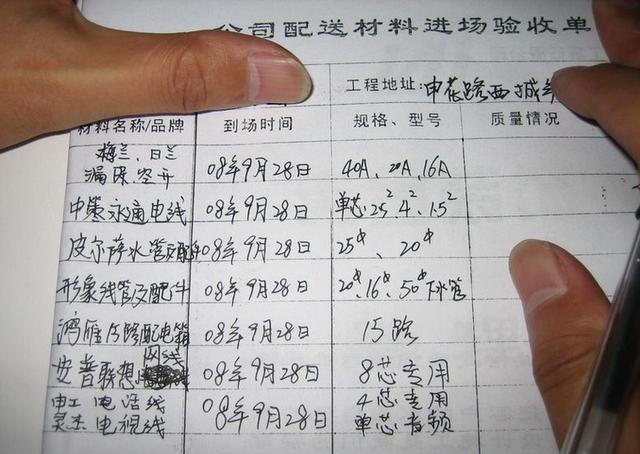 公司配送材料进场验收单
工程地址: 申花路西城年
材料名称/品牌 到场时间 规格、型号 质量情况
梅兰、日兰
漏保、空开 08年9月28日 40A、20A、16A
中策永通电线 08年9月28日 单芯2.5² 4² 1.5²
皮尔萨水管及配件 08年9月28日 25⌀、20⌀
形象线管及配件 08年9月28日 20⌀、16⌀、50⌀下水管
鸿雁15路配电箱 08年9月28日 15路
网线
安普联想 08年9月28日 8芯专用
电工电话线 4芯专用
08年9月28日
吴杰电视线 单芯音频